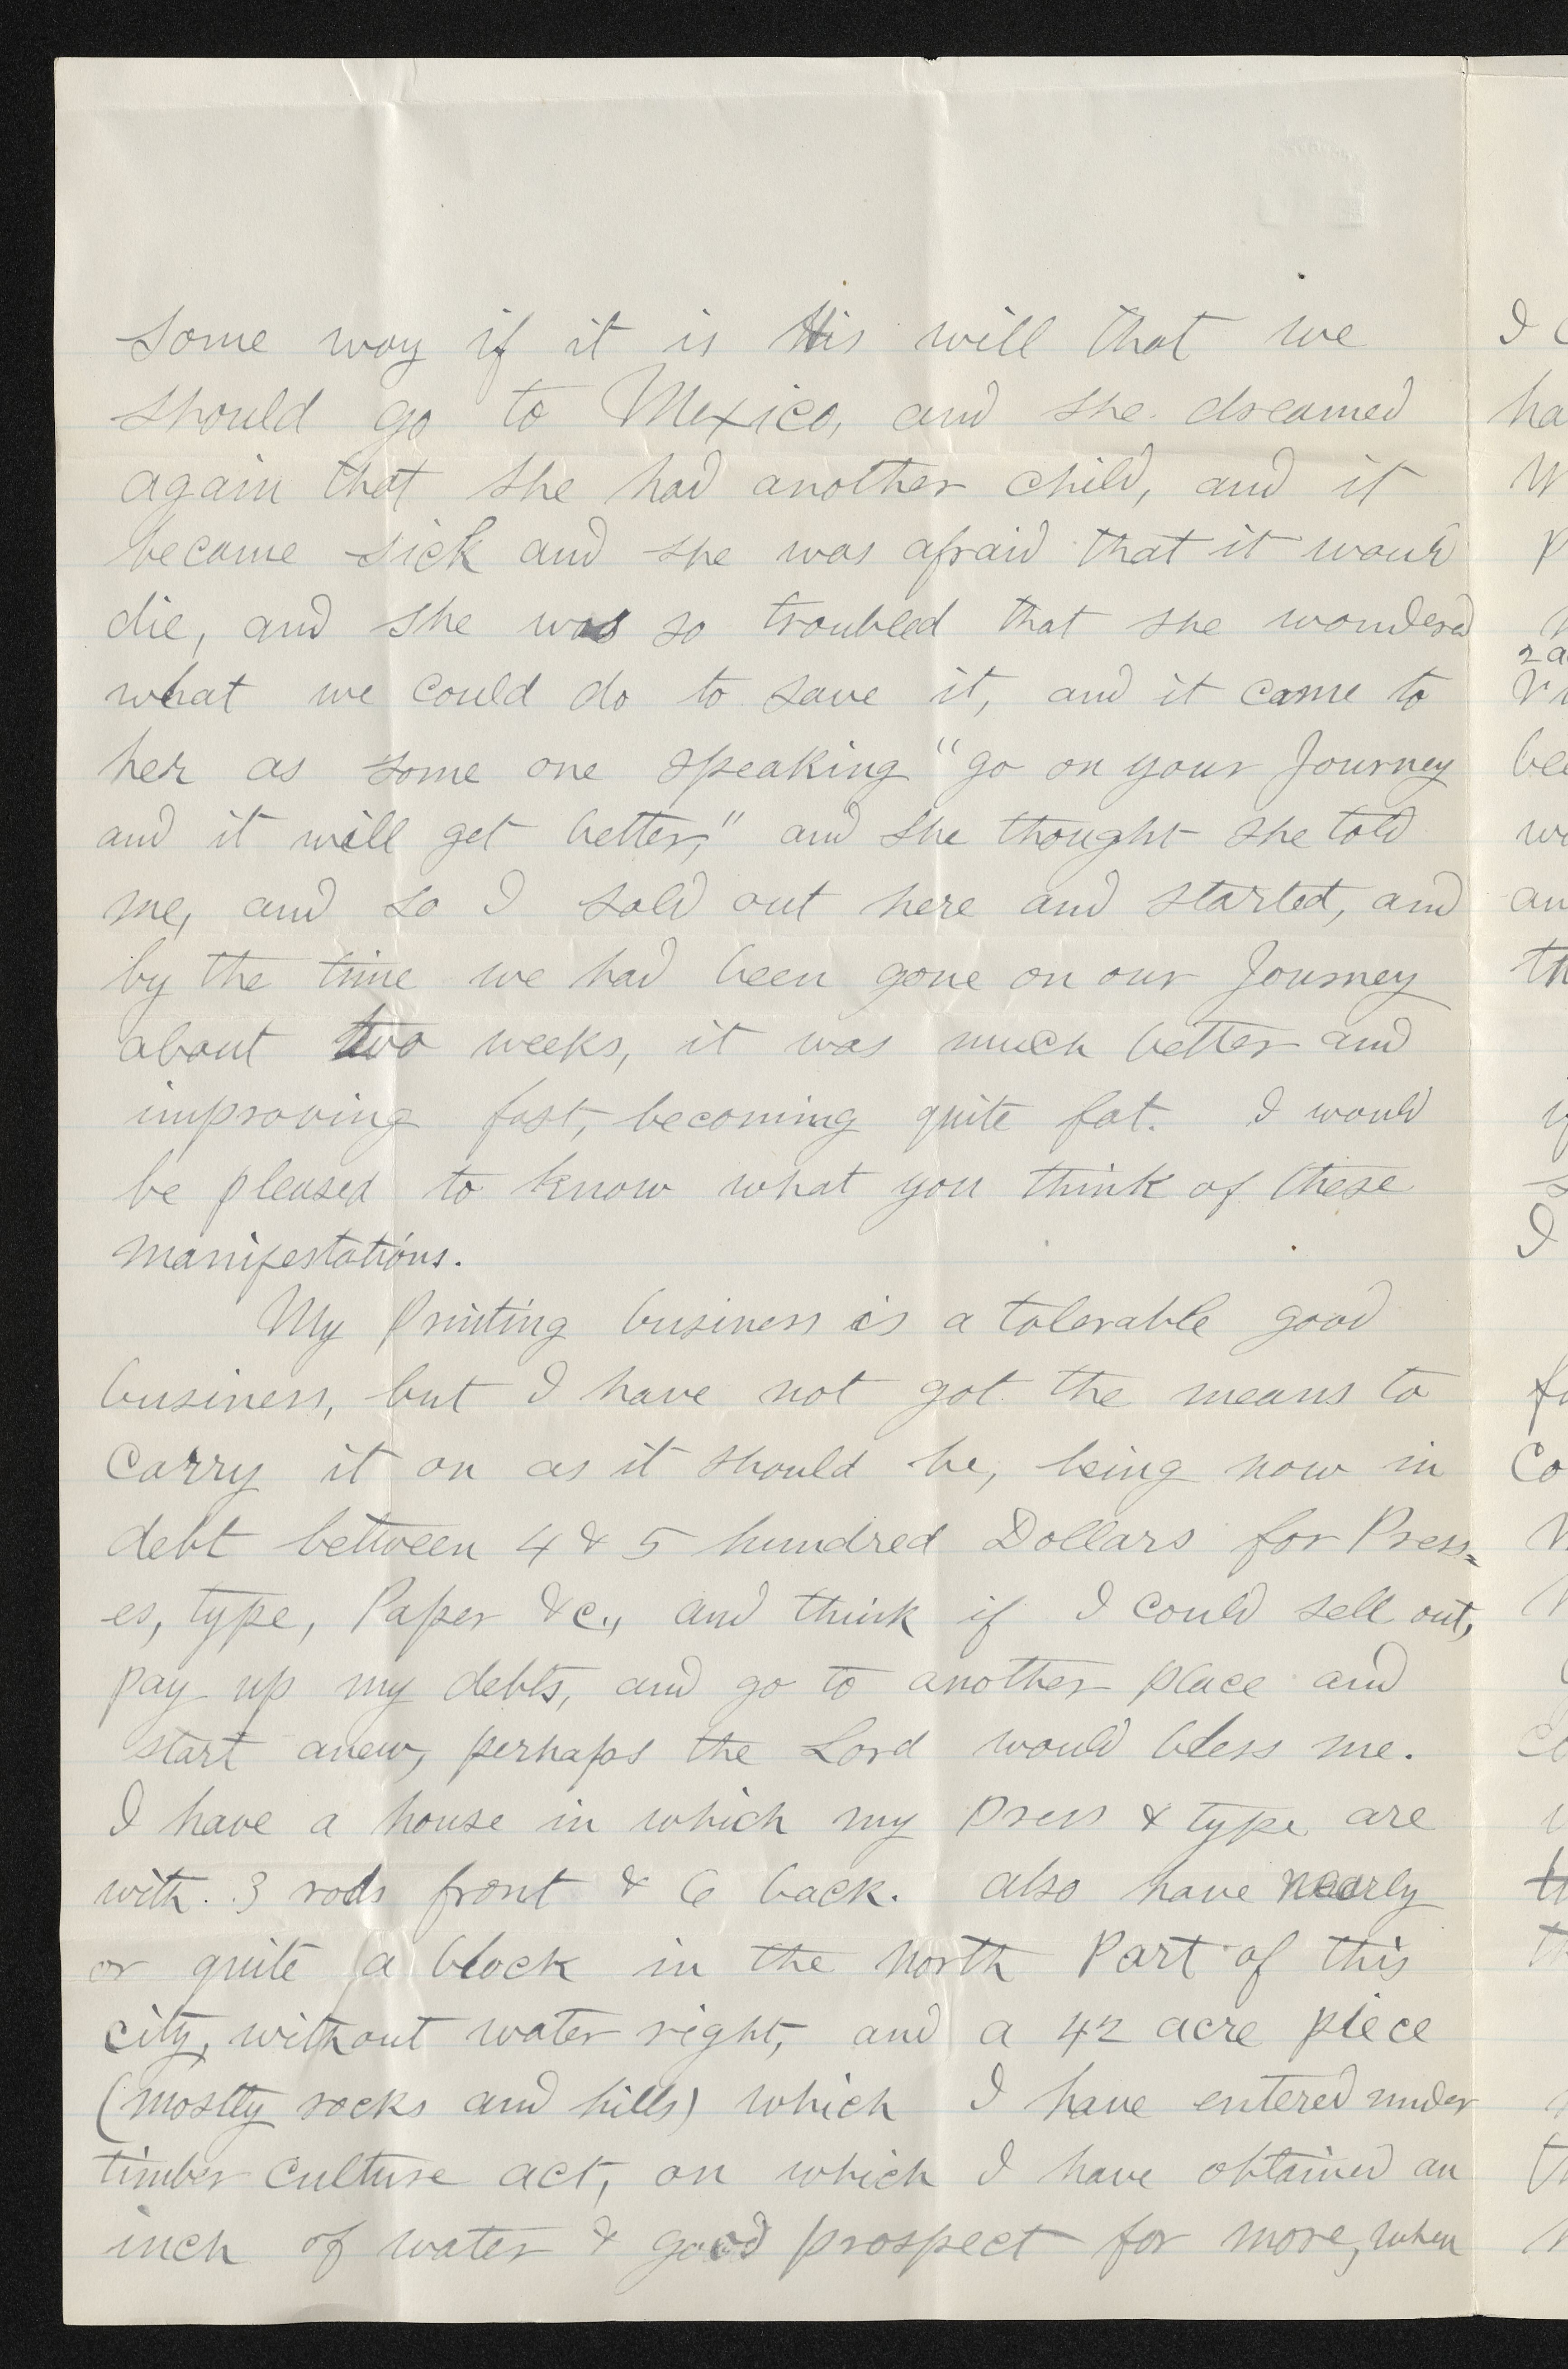 some way if it is His will that we
should go to Mexico, and she dreamed
again that she had another child, and it
became sick and she was afraid that it would
die, and she was so troubled that she wondered
what we could do to save it, and it came to
her as some one speaking "go on your Journey
and it will get better," and she thought she told
me, and so I sold out here and started, and
by the time we had been gone on our Journey
about two weeks, it was much better and
improving fast, becoming quite fat. I would
be pleased to know what you think of these
manifestations.
My Printing business is a tolerable good
business, but I have not got the means to
carry it on as it should be, being now in
debt between 4 & 5 hundred Dollars for Press=
es, type, Paper &c., and think if I could sell out,
pay up my debts, and go to another place and
start anew, perhaps the Lord would bless me.
I have a house in which my press & type are
with 3 rods front & 6 back. also have nearly
or quite a block in the north Part of this
city, without water right, and a 42 acre piece
(mostly rocks and hills) which I have entered under
timber culture act, on which I have obtained an
inch of water & good prospect for more, when